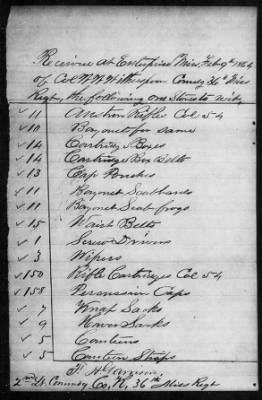 Received at Enterprise Miss, Feb 9th 1864
of Col W. W. Witherspoon Comdg 36th Miss
Regt, the following ord Stores to wit;
✓ 11 Austrian Rifles Cal 54
✓ 10 Bayonets for same
✓ 14 Cartridge Boxes
✓ 14 Cartridge Box Belts
✓ 13 Cap Pouches
✓ 11 Bayonet Scabbards
✓ 11 Bayonet Scab frogs
✓ 15 Waist Belts
✓ 1 Screw Drivers
✓ 3 Wipers
✓ 150 Rifle Cartridges Cal 54
✓ 158 Percussion Caps
✓ 7 Knap Sacks
✓ 9 Haver Sacks
✓ 5 Canteens
✓ 5 Canteen Straps
H. Garrison,
2nd Lt. Commdg Co, K, 36th Miss Regt